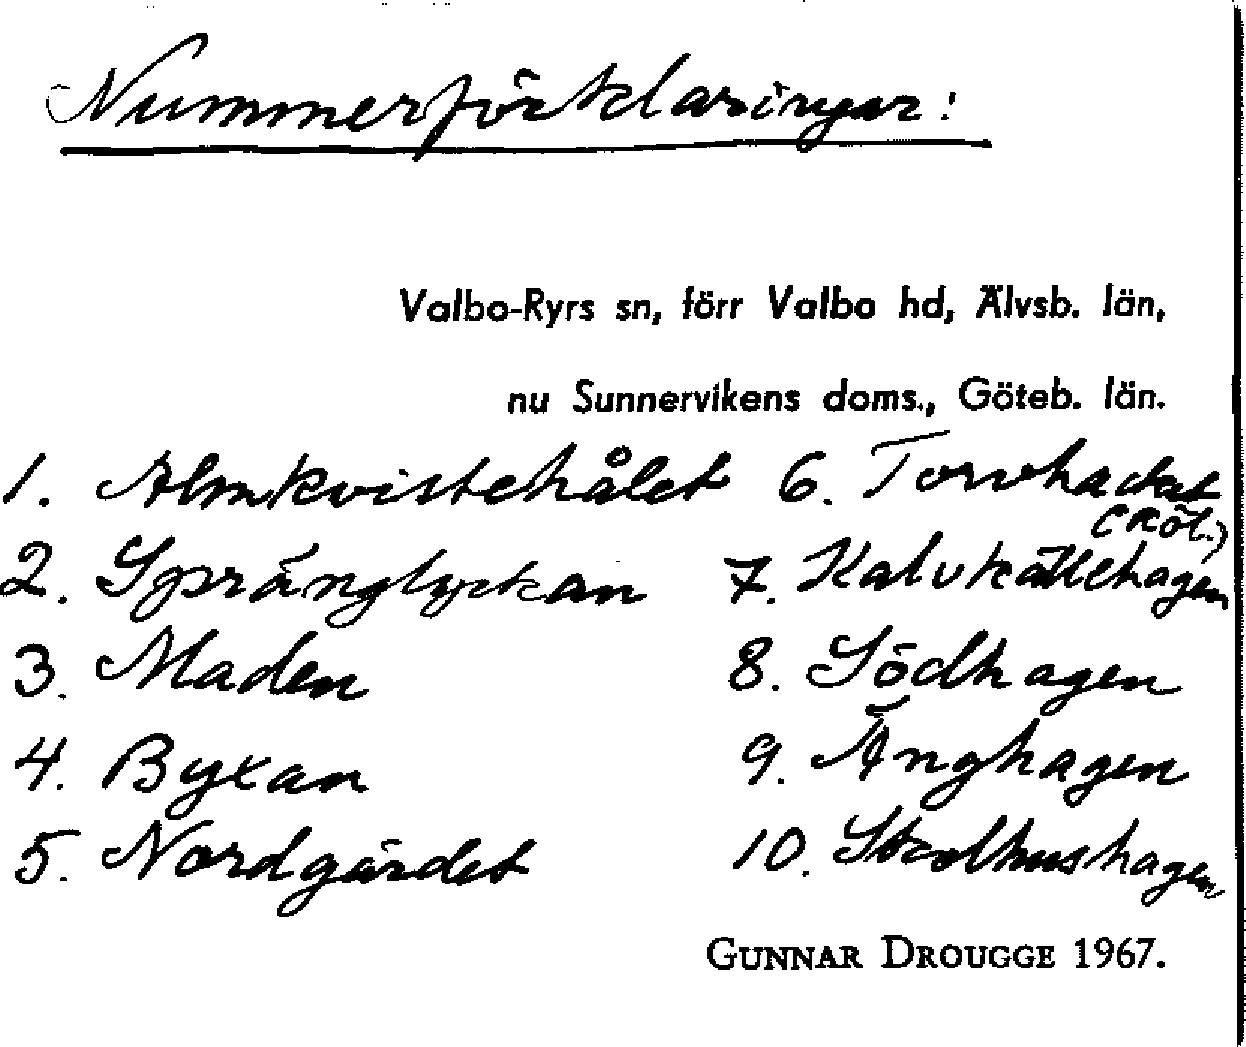 Nummerförklaringar:
Valbo-Ryrs sn, förr Valbo hd, Älvsb. län,
nu Sunnervikens doms., Göteb. län.
1. Almkvistehålet
2. Spränglyckan
3. Maden
4. Byxan
5. Nordgärdet
6. Torvhacket
(Röl.)
7. Kalvkättehagen
8. Södhagen
9. Änghagen
10.
GUNNAR DROUGGE 1967.